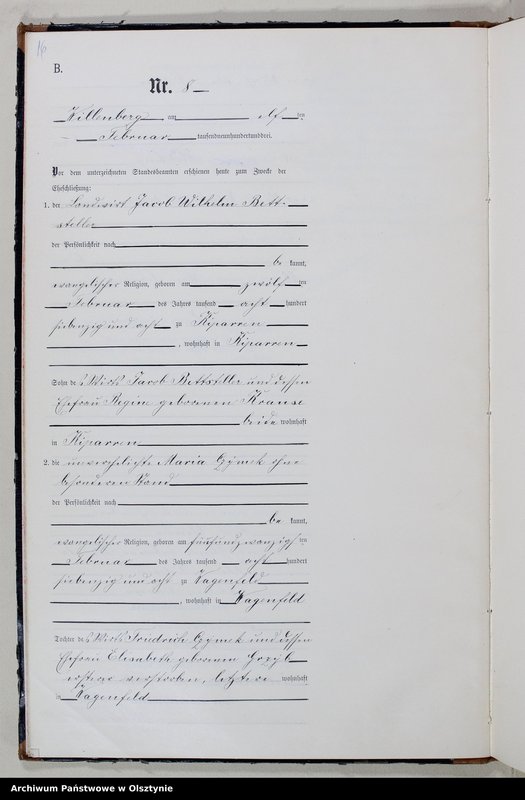 16
B.
Nr. 8
Willenberg, am elf ten
Februar tausendneunhundertunddrei.
Vor dem unterzeichneten Standesbeamten erschienen heute zum Zwecke der
Eheschließung:
1. der Landwirt Jacob Wilhelm Bett-
steller
der Persönlichkeit nach
be kannt,
evangelischer Religion, geboren am zwölf ten
Februar des Jahres tausend acht hundert
siebenzig und acht zu Kiparren
, wohnhaft in Kiparren
Sohn des Wirts Jacob Bettsteller und dessen
Ehefrau Regine geborenen Krause
beide wohnhaft
in Kiparren
2. die unverehelichte Maria Gzymek ohne
besonderen Stand
der Persönlichkeit nach
be kannt,
evangelischer Religion, geboren am fünfundzwanzigs ten
Februar des Jahres tausend acht hundert
siebenzig und acht zu Wagenfeld
, wohnhaft in Wagenfeld
Tochter des Wirts Friedrich Gzymek und dessen
Ehefrau Elisabeth geborenen
ersterer verstorben, letztere wohnhaft
in Wagenfeld
Archiwum Państwowe w Olsztynie